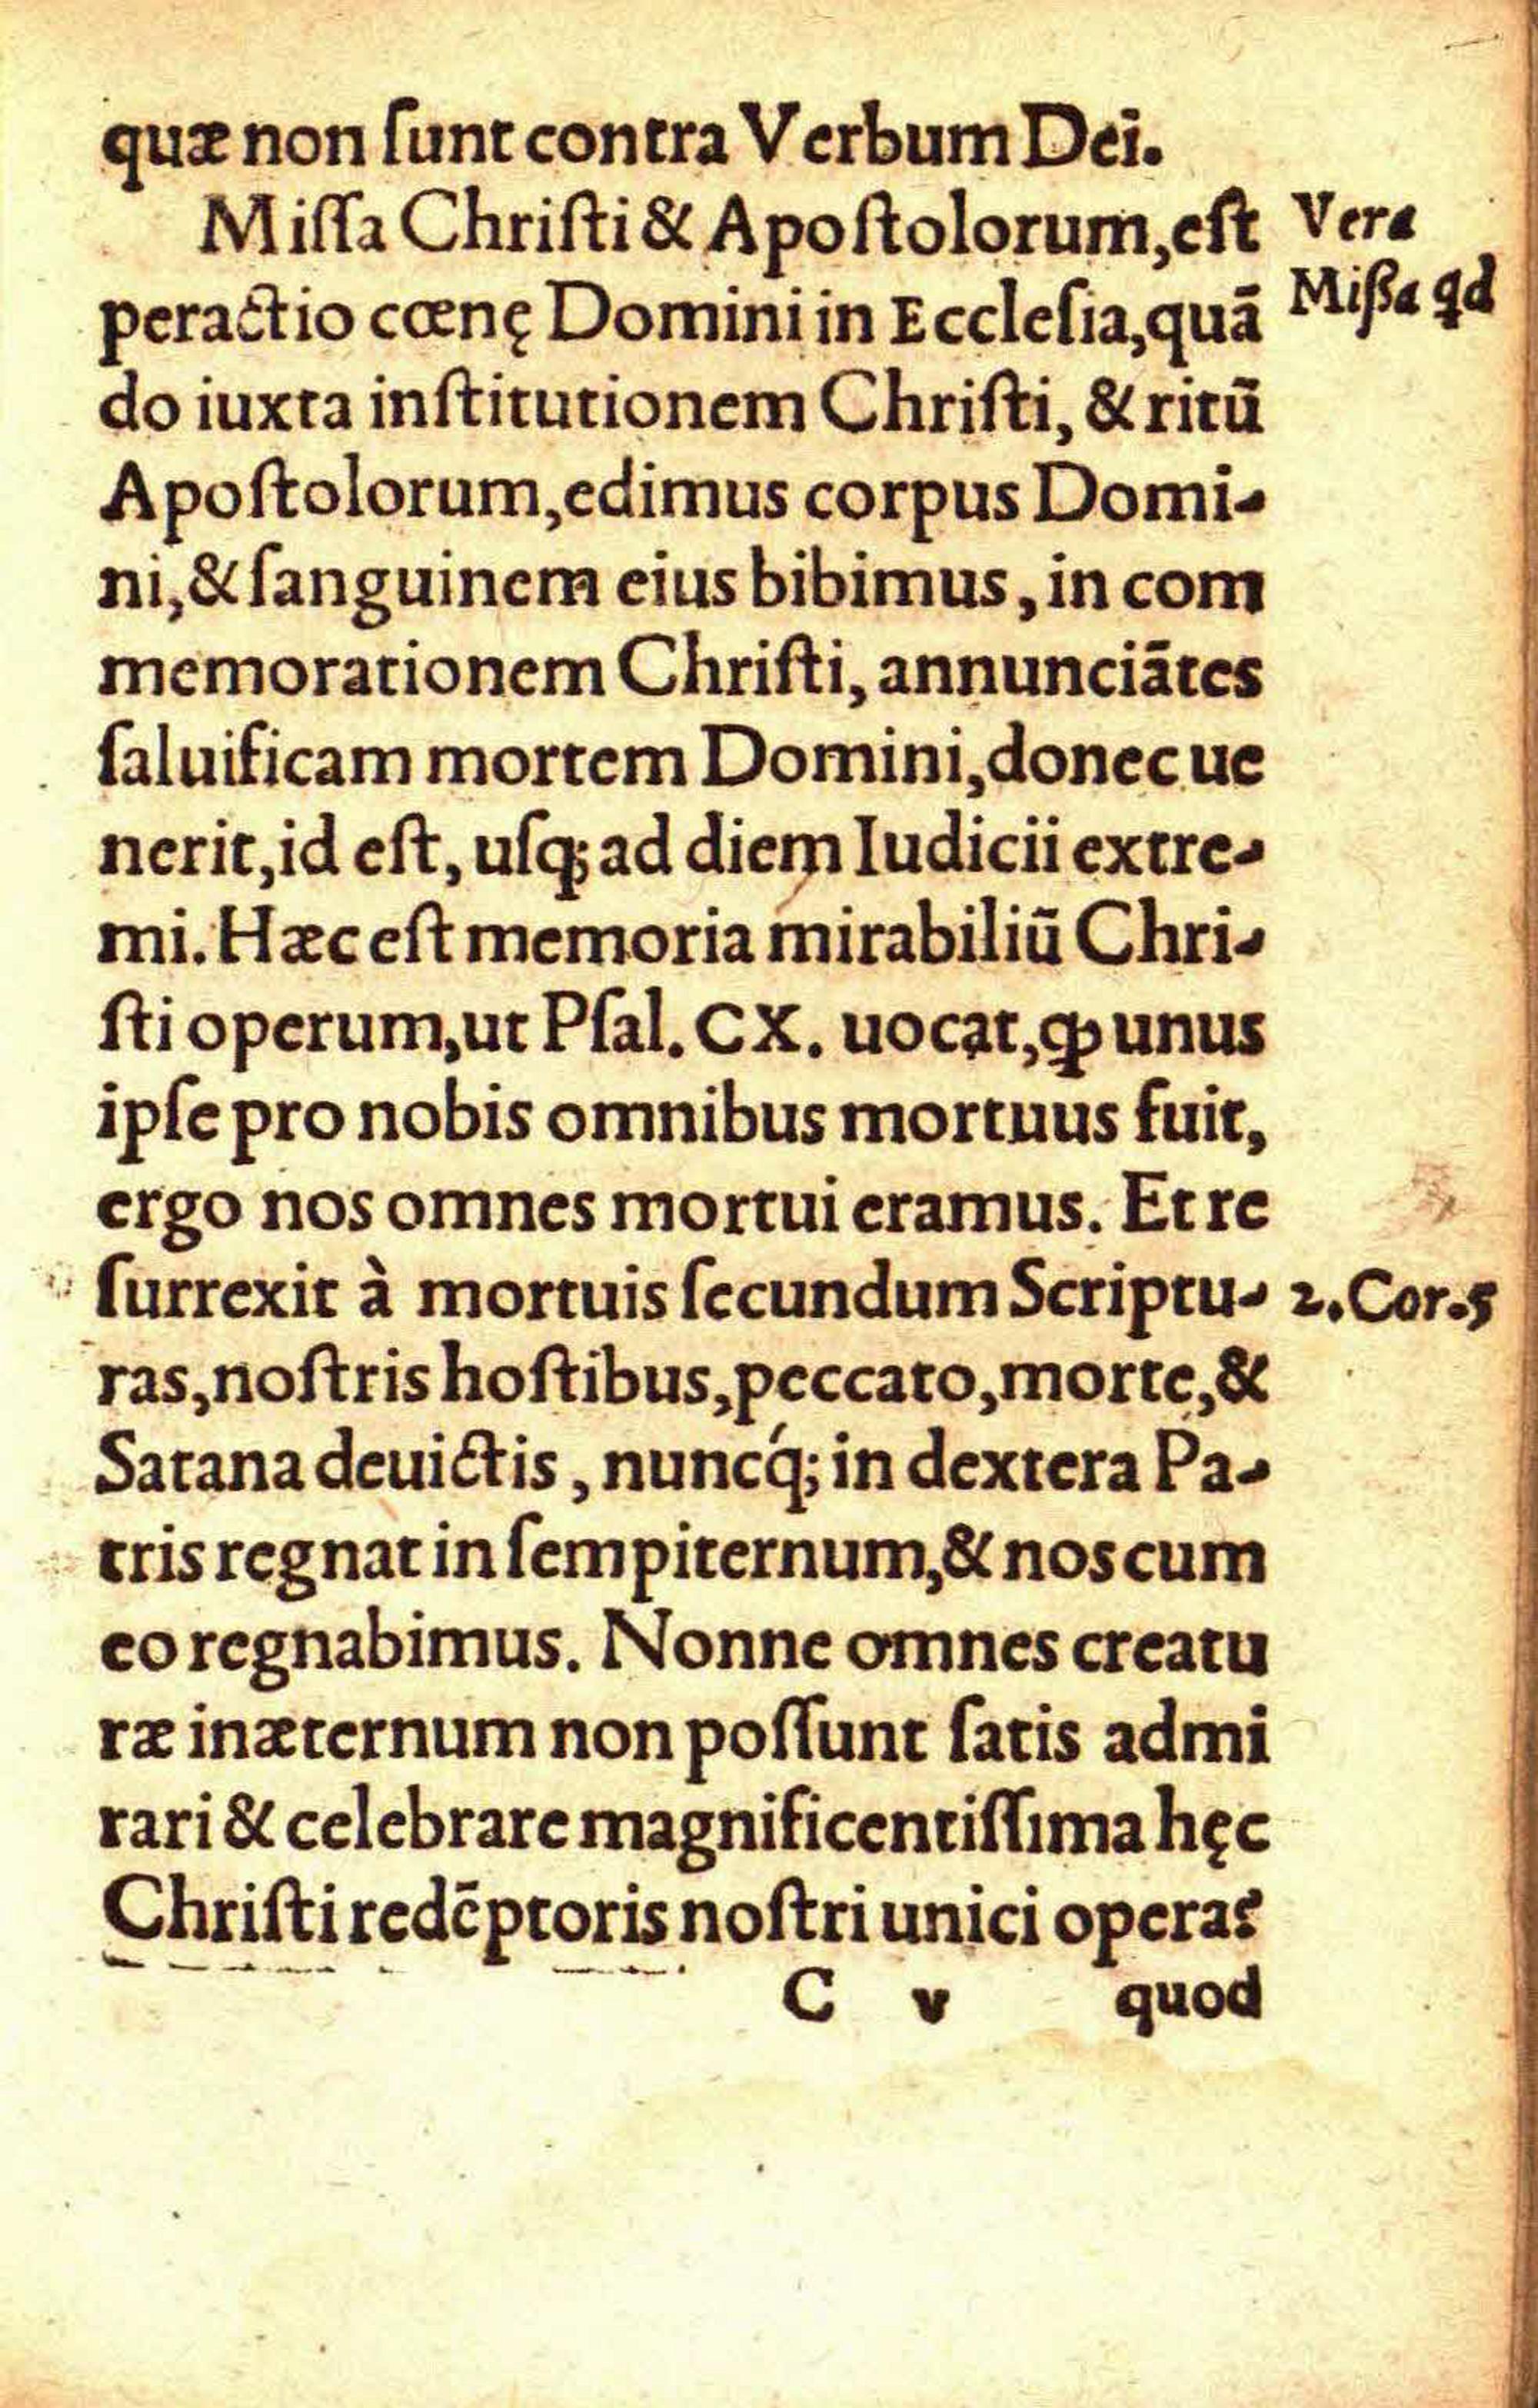 quæ non ſunt contra Verbum Dei.
Miſſa Chriſti & Apoſtolorum, eſt
Vera
peractio cœnę Domini in Eccleſia, quã
Mißa qd
do iuxta inſtitutionem Chriſti, & ritũ
Apoſtolorum, edimus corpus Domi-
ni, & ſanguinem eius bibimus, in com
memorationem Chriſti, annunciãtes
ſaluificam mortem Domini, donec ue
nerit, id eſt, uſq; ad diem Iudicii extre-
mi. Hæc eſt memoria mirabiliũ Chri-
ſti operum, ut Pſal. CX. uocat, ꝙ unus
ipſe pro nobis omnibus mortuus fuit,
ergo nos omnes mortui eramus. Et re
ſurrexit à mortuis ſecundum Scriptu-
2. Cor. 5
ras, noſtris hoſtibus, peccato, morte, &
Satana deuictis, nuncq́; in dextera Pa-
tris regnat in ſempiternum, & nos cum
eo regnabimus. Nonne omnes creatu
ræ inæternum non poſſunt ſatis admi
rari & celebrare magnificentiſſima hęc
Chriſti redẽptoris noſtri unici opera?
C v quod